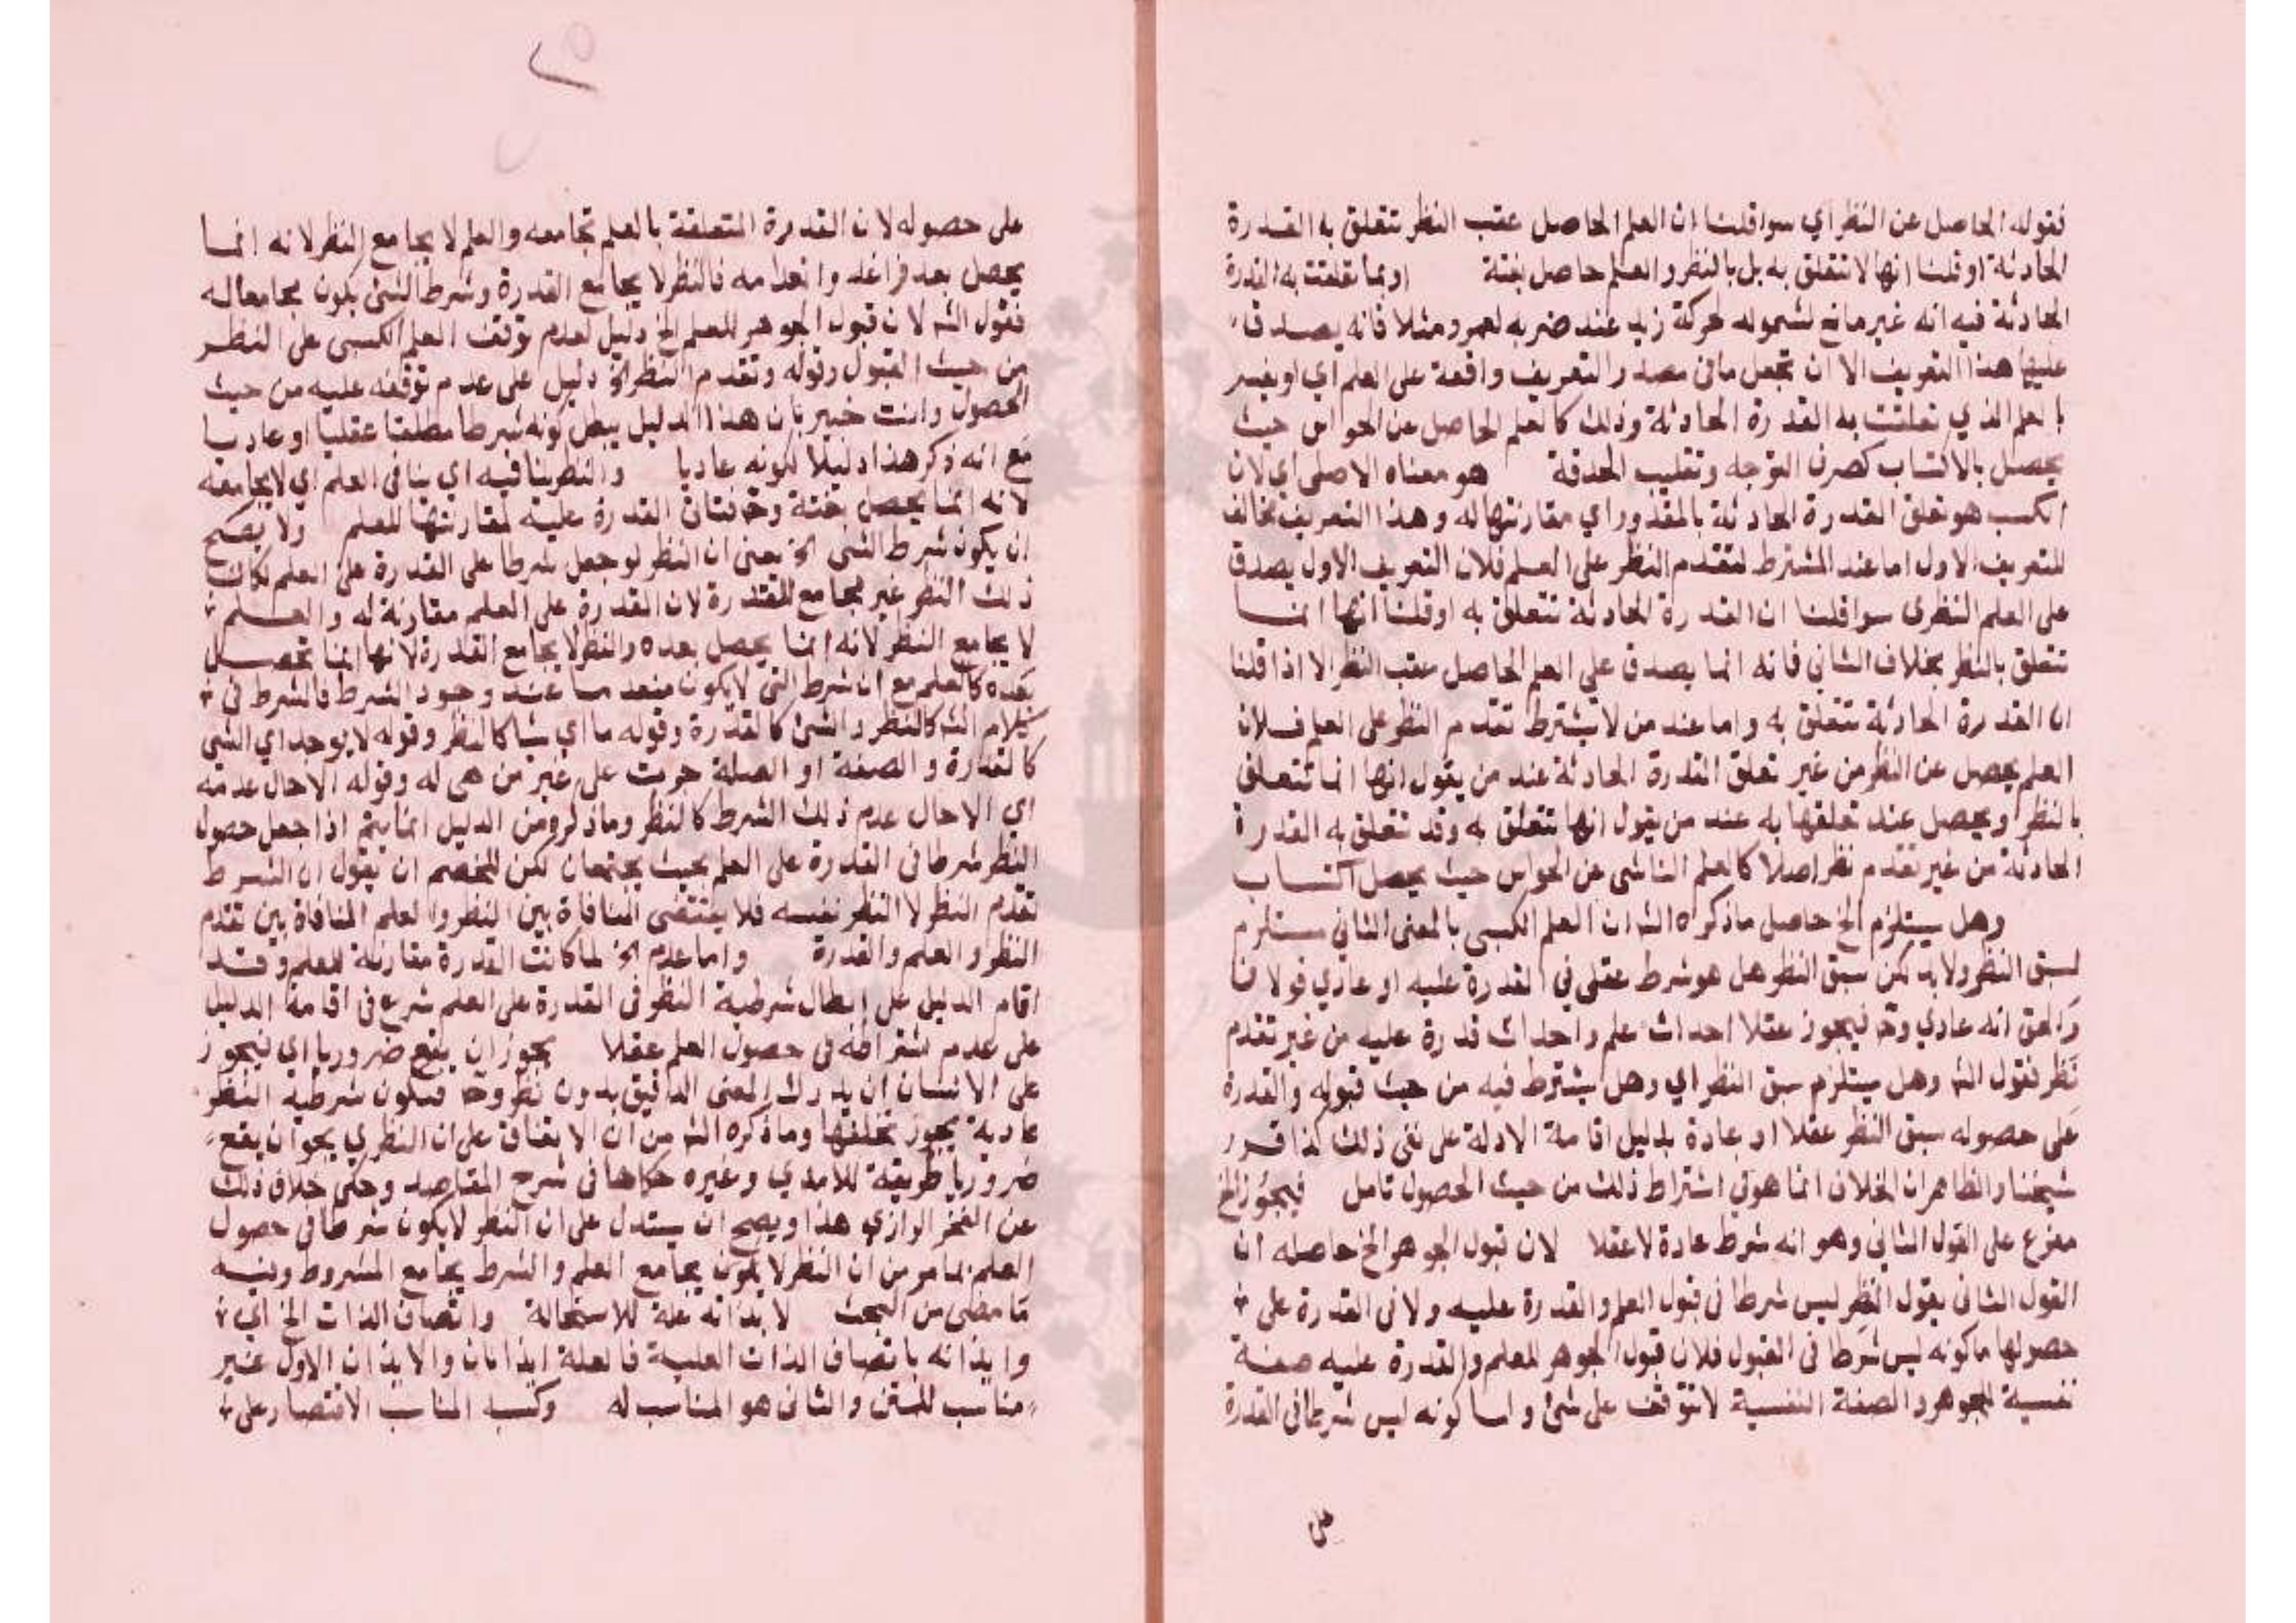 فقوله الحاصل عن النظر اي سوا قلنا ان العلم الحاصل عقب النظر تتعلق به القدرة
الحادثة او قلنا انها لا تتعلق به بل بالنظر والعلم حاصل بغتة او بما تعلقت به القدرة
الحادثة فيه انه غير مانع لشموله لحركة زيد عند ضربه لعمرو مثلا فانه يصدق
عليها هذا التعريف الا ان تجعل ما في مصدر التعريف واقعة على العلم اي او يفسر
بالعلم الذي تعلقت به القدرة الحادثة وذلك كالعلم الحاصل عن الحواس حيث
يحصل بالاكتساب كصرف التوجه وتقليب الحدقة هو معناه الاصلى اي لان
الكسب هو تعلق القدرة الحادثة بالمقدور اي مقارنتها له وهذا التعريف مخالف
للتعريف الاول اما عند المشترط لتقدم النظر على العلم فلان التعريف الاول يصدق
على العلم النظرى سوا قلنا ان القدرة الحادثة تتعلق به او قلنا انها انما
تتعلق بالنظر بخلاف الثاني فانه انما يصدق على العلم الحاصل عقب النظر الا اذا قلنا
ان القدرة الحادثة تتعلق به واما عند من لا يشترط تقدم النظر على العلم فلان
العلم يحصل عن النظر من غير تعلق القدرة الحادثة عند من يقول انها انما تتعلق
بالنظر ويحصل عند تعلقها به عند من يقول انها تتعلق به وقد تتعلق به القدرة
الحادثة من غير تقدم نظر اصلا كالعلم الناشى عن الحواس حيث يحصل اكتساب
وهل يستلزم الخ حاصل ما ذكره الشه ان العلم الكسبي بالمعنى الثاني مستلزم
لسبق النظر ولابد لكن سبق النظر هل هو شرط عقلى في القدرة عليه او عادي قولان
والحق انه عادي وح فيجوز عقلا احداث علم واحداث قدرة عليه من غير تقدم
نظر فقول الشه وهل يستلزم سبق النظر اي وهل يشترط فيه من حيث قبوله والقدرة
على حصوله سبق النظر عقلا او عادة بدليل اقامة الادلة على نفى ذلك كذا قرر
شيخنا والظاهر ان الخلاف انما هو في اشتراط ذلك من حيث الحصول تامل فيجوز الخ
مفرع على القول الثاني وهو انه شرط عادة لا عقلا لان قبول الجوهر الخ حاصله ان
القول الثاني يقول النظر ليس شرطا في قبول العلم والقدرة عليه ولا في القدرة على
حصولها ما كونه ليس شرطا في القبول فلان قبول الجوهر للعلم والقدرة عليه صفة
نفسية للجوهر والصفة النفسية لا تتوقف على شئ واما كونه ليس شرطا في القدرة
على
على حصوله لان القدرة المتعلقة بالعلم تجامعه والعلم لا يجامع النظر لانه انما
يحصل بعد فراغه وانعدامه فالنظر لا يجامع القدرة وشرط الشئ يكون مجامعا له
فقول الشه لان قبول الجوهر للعلم الخ دليل لعدم توقف العلم الكسبى على النظر
من حيث القبول وقوله وتقدم النظر الخ دليل على عدم توقفه عليه من حيث
الحصول وانت خبير بان هذا الدليل يبطل كونه شرطا مطلقا عقليا او عاديا
مع انه ذكر هذا دليلا لكونه عاديا والنظر ينافيه اي ينافى العلم اي لا يجامعه
لانه انما يحصل بغتة وح فتتاتى القدرة عليه لمقارنتها للعلم ولا يصح
ان يكون شرط الشى الخ يعنى ان النظر لو جعل شرطا على القدرة على العلم لكان
ذلك النظر غير مجامع للقدرة لان القدرة على العلم مقارنة له والعلم
لا يجامع النظر لانه انما يحصل بعده والنظر لا يجامع القدرة لانها انما تحصل
بعده كالعلم مع ان شرط الشى لا يكون منعدما عند وجود الشرط فالشرط في
كلام الشه كالنظر والشئ كالقدرة وقوله ما اي شيا كالنظر وقوله لا يوجد اي الشى
كالقدرة والصفة او الصلة جرت على غير من هي له وقوله الاحال عدمه
اي الاحال عدم ذلك الشرط كالنظر وما ذكروه من الدليل انما يتم اذا جعل حصول
النظر شرطا في القدرة على العلم بحيث يجتمعان لكن للخصم ان يقول ان الشرط
تقدم النظر لا النظر نفسه فلا يقتضى المنافاة بين النظر والعلم المنافاة بين تقدم
النظر والعلم والقدرة واما عدم الخ لما كانت القدرة مقارنة للعلم وقد
اقام الدليل على ابطال شرطية النظر في القدرة على العلم شرع في اقامة الدليل
على عدم اشتراطه في حصول العلم عقلا يجوز ان يقع ضروريا اي فيجوز
على الانسان ان يدرك المعنى الدقيق بدون نظر وح فتكون شرطية النظر
عادية يجوز تخلفها وما ذكره الشه من ان الاتفاق على ان النظري يجوز ان يقع
ضروريا طريقة للامدي وغيره حكاها في شرح المقاصد وحكى خلاف ذلك
عن الفخر الرازي هذا ويصح ان يستدل على ان النظر لا يكون شرطا في حصول
العلم بما مر من ان النظر لا يكون يجامع العلم والشرط يجامع المشروط وفيه
ما مضى من البحث لا يذانه علة للاستحالة واتصاف الذات الخ اي
وايذانه باتصاف الذات العلية فالعلة ايذانان والايذان الاول غير
مناسب للمتن والثانى هو المناسب له وكسبه المناسب الاقتصار على